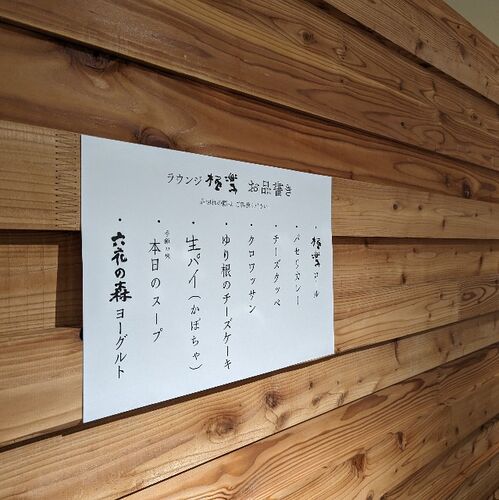 ラウンジ 極楽 お品書き
・極楽ロール
・パセリスシー
・チーズタッペ
・クロワッサン
・ゆり根のチーズケーキ
・生パイ（かぼちゃ）
・本日のスープ
・六花の森ヨーグルト